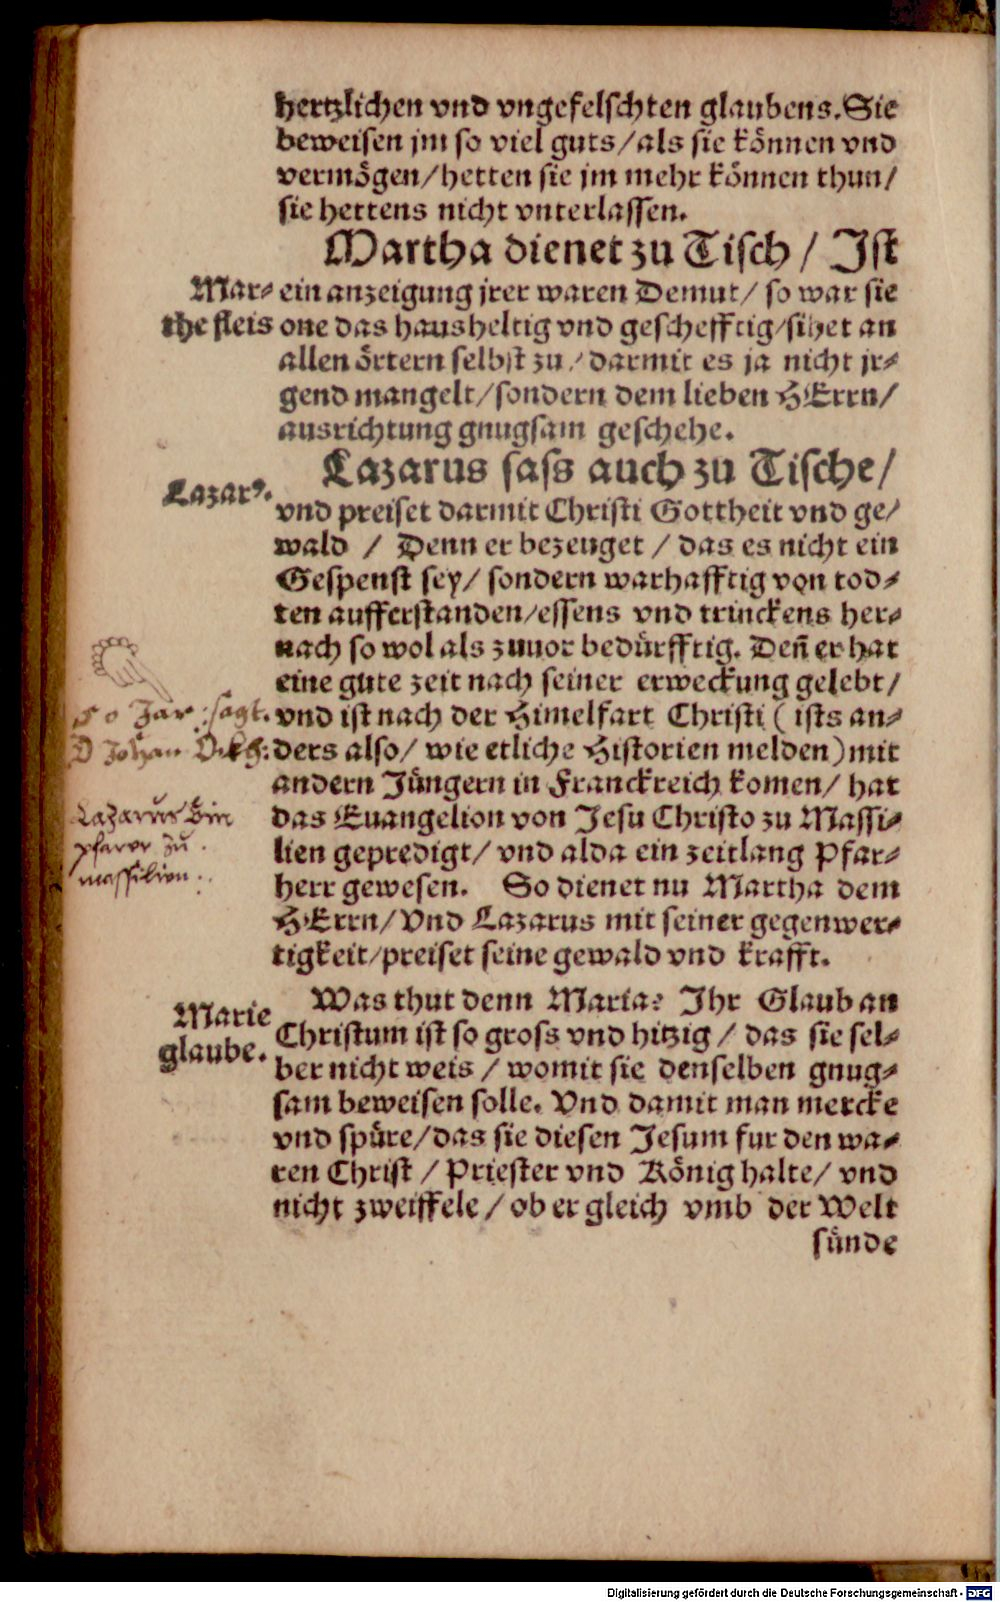 hertzlichen vnd vngefelschten glaubens. Sie
beweisen jm so viel guts/als sie können vnd
vermögen/hetten sie jm mehr können thun/
sie hettens nicht vnterlassen.
Martha dienet zu Tisch / Ist
Mar-
the fleis
ein anzeigung jrer waren Demut/ so war sie
one das hausheltig vnd geschefftig/sihet an
allen örtern selbst zu/ darmit es ja nicht jr-
gend mangelt/sondern dem lieben HErrn/
ausrichtung gnugsam geschehe.
Lazarus sass auch zu Tische/
Lazarꝰ.
vnd preiset darmit Christi Gottheit vnd ge/
wald / Denn er bezeuget / das es nicht ein
Gespenst sey/ sondern warhafftig von tod-
ten aufferstanden/essens vnd trinckens her-
nach so wol als zuuor bedürfftig. Deñ er hat
eine gute zeit nach seiner erweckung gelebt/
50 Jar sagt.
D Johan
vnd ist nach der Himelfart Christi ( ists an-
ders also/ wie etliche Historien melden) mit
andern Jüngern in Franckreich komen/ hat
Lazarus bin
pfarer zu
massilien.
das Euangelion von Jesu Christo zu Massi-
lien gepredigt/ vnd alda ein zeitlang Pfar-
herr gewesen. So dienet nu Martha dem
HErrn/ Vnd Lazarus mit seiner gegenwer-
tigkeit/preiset seine gewald vnd krafft.
Marie
glaube.
Was thut denn Maria? Ihr Glaub an
Christum ist so gross vnd hitzig / das sie sel-
ber nicht weis / womit sie denselben gnug-
sam beweisen solle. Vnd damit man mercke
vnd spüre/das sie diesen Jesum fur den wa-
ren Christ / Priester vnd König halte/ vnd
nicht zweiffele / ob er gleich vmb der Welt
sünde
Digitalisierung gefördert durch die Deutsche Forschungsgemeinschaft - DFG